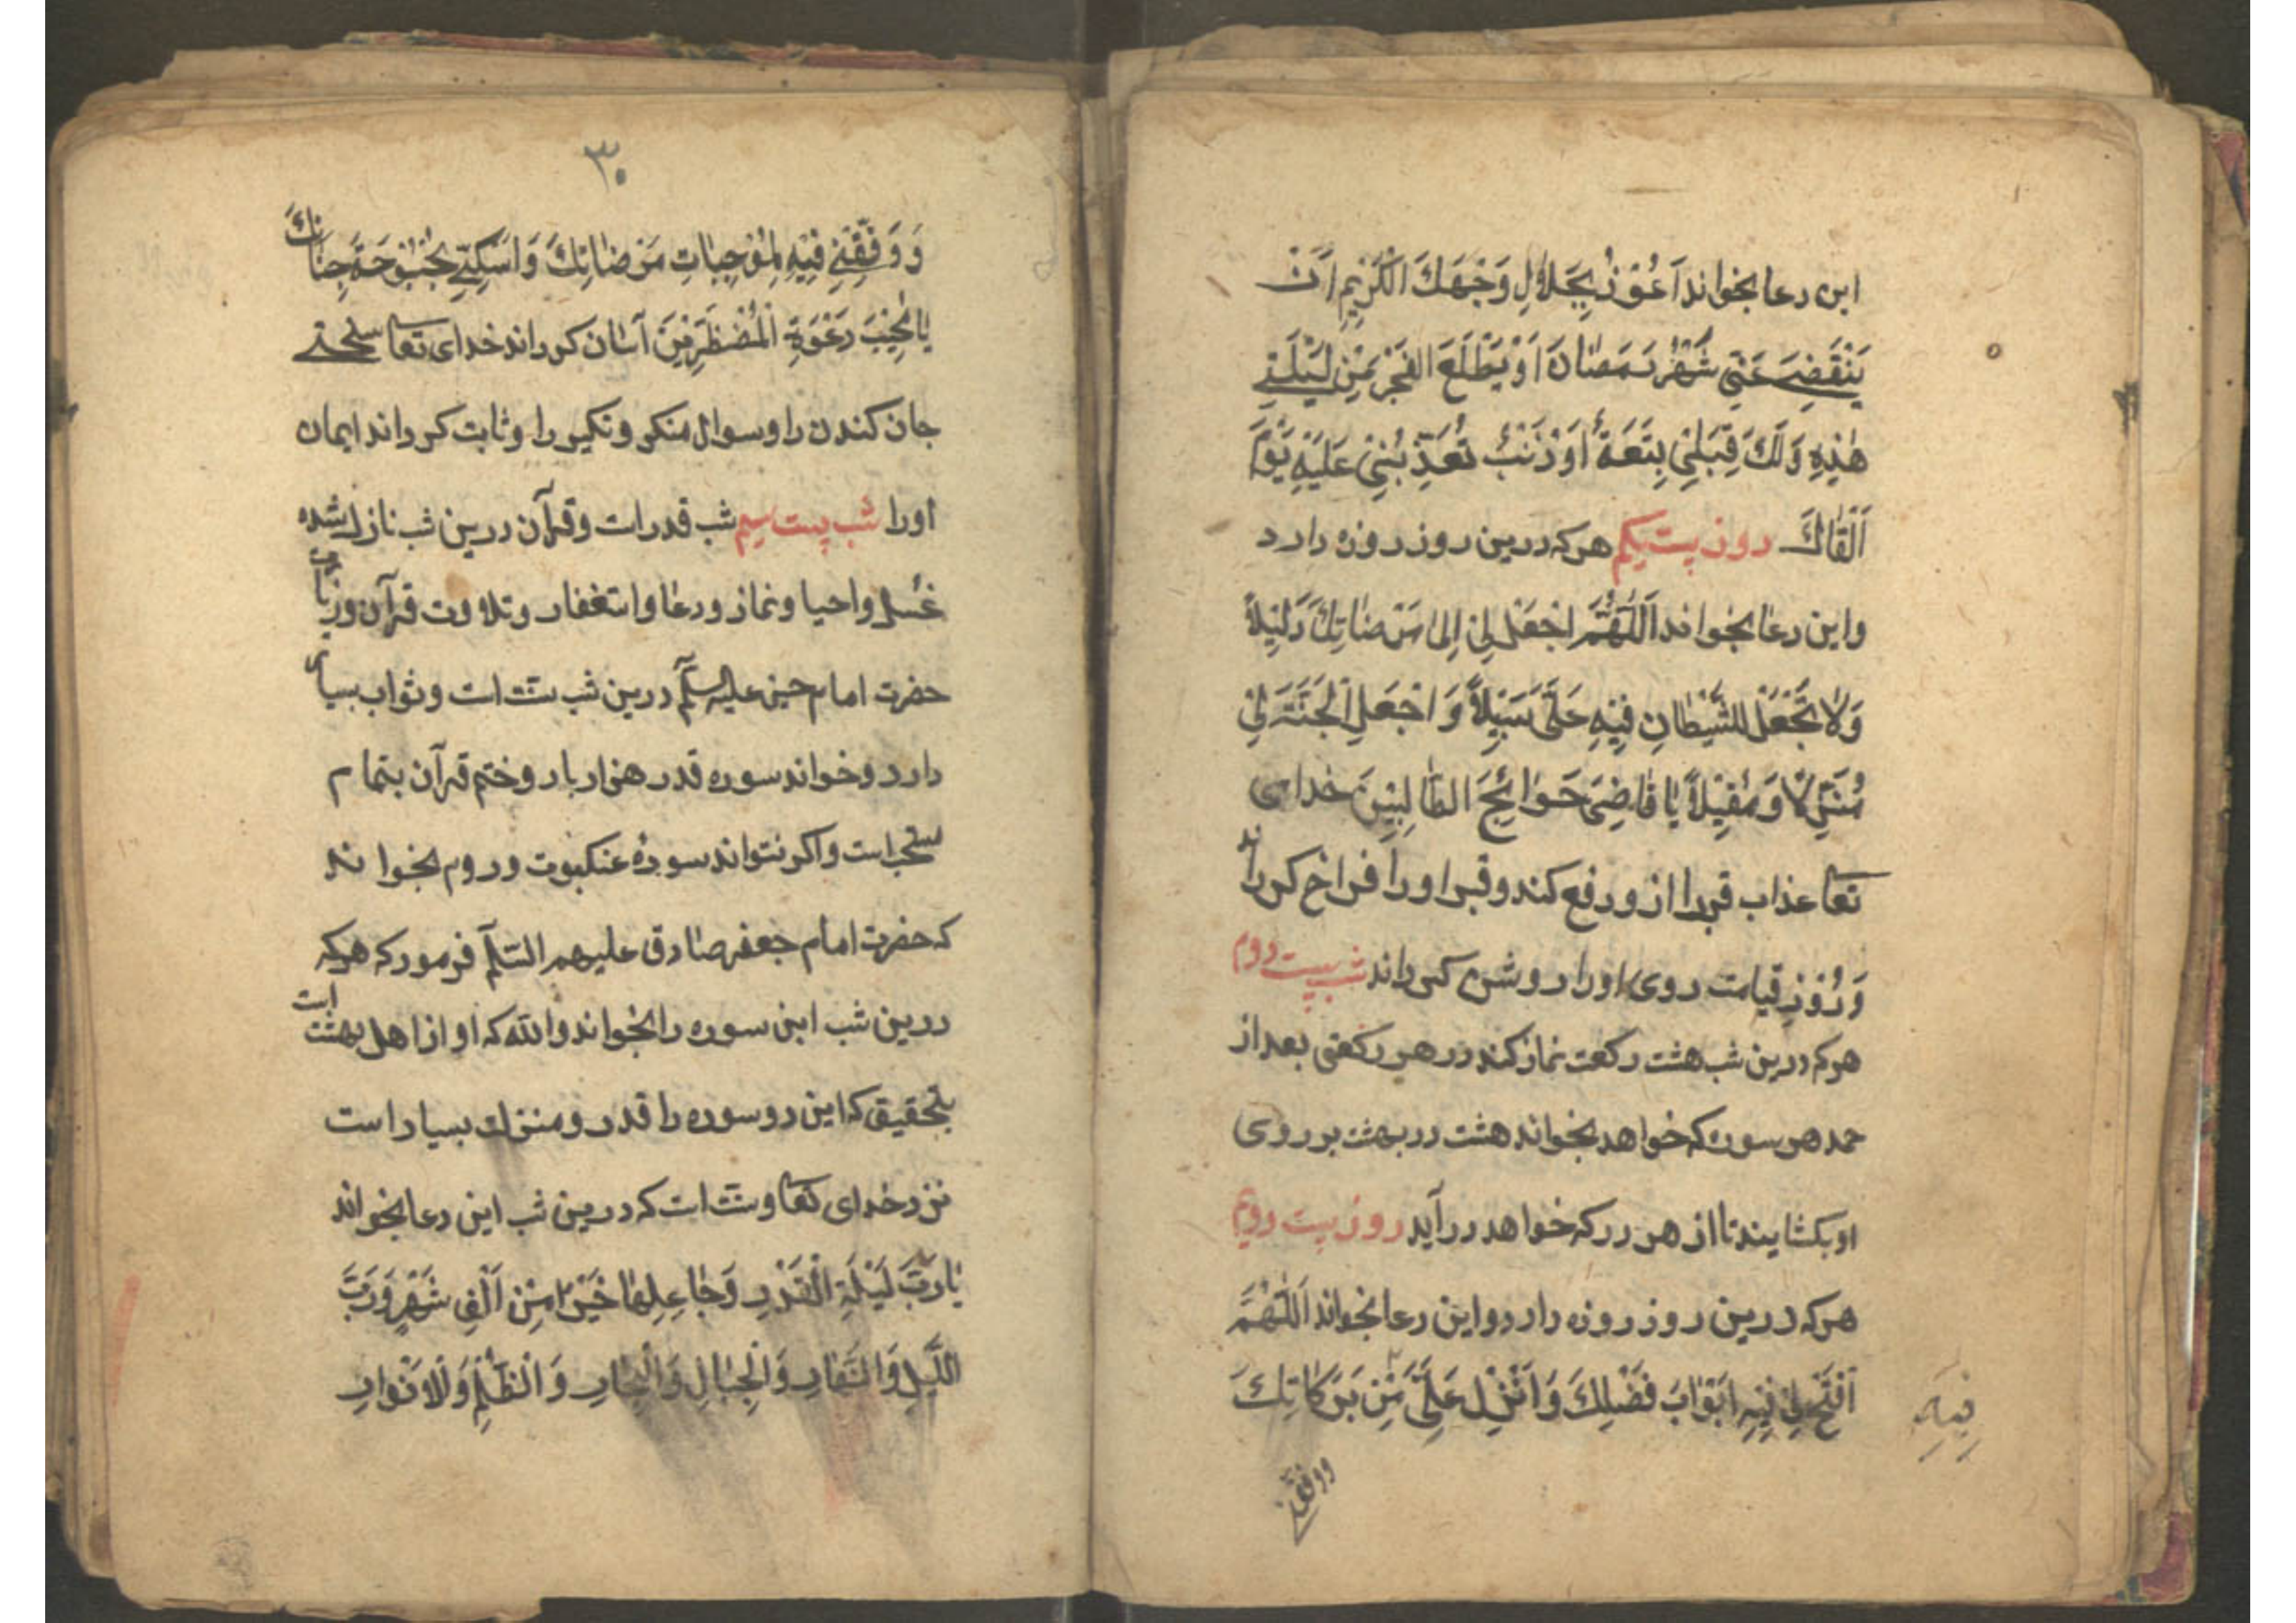 این دعا بخواند اَعُوْذُ بِجَلاٰلِ وَجْهِكَ الْكَرِيْمِ اَنْ
يَنْقَضِيَ عَنّيِ شَهْرُ رَمَضٰانَ اَوْ يَطْلَعَ الفَجْرُ مِنْ لَيْلَتيِ
هٰذِهِ وَلَكَ قِبَلِيْ بِتَعَةٌ اَوْ ذَنْبٌ تُعَذِّبُنِيْ عَلَيْهِ يَوْمَ
اَلْقٰاكَ روز بیست یکم هرکه درین روز روزه دارد
واین دعا بخواند اَللّٰهُمَّ اجْعَلْ لِيْ اِلىٰ مَرْضٰاتِكَ دَلِيْلاً
وَلاٰ تَجْعَلْ للشَّيْطٰانِ فِيْهِ عَلَيَّ سَبِيْلاً وَ اجْعَلِ الْجَنَّةَ لِيْ
مُنَزِلاً وَمُقِيْلاً يٰا قٰاضِيَ حَوٰائِجَ الطّٰالِبِيْنَ خدای
تعا عذاب قبررا ازو رفع کند وقبر اورا فراخ کرداند
وَرُوْزِ قیامت روی اورا روشن کرداند شب بیست دوم
هرکه درین شب هشت رکعت نماز کند در هر رکعتی بعد از
حمد هر سوره که خواهد بخواند هشت در بهشت بر روی
او بکشایند تا از هر در که خواهد در آید روز بیست دویم
هرکه درین روز روزه دارد و این دعا بخواند اَللّٰهُمَّ
اَفْتَحْ لِيْ فِيْهِ اَبْوٰابَ فَضْلِكَ وَ اَنْزِلْ عَلَيَّ مِنْ بَرَكٰاتِكَ
فِيْهِ
ووفقنے
۳۰
وَ وَفِّقْنِے فِيْهِ لِمُوْجِبٰاتِ مَرْضٰاتِكَ وَ اَسْكِنّيِ بُحْبُوْحَةَ جِنٰانِكَ
يٰا مُجِيْبَ دَعْوَةِ الْمُضْطَرِّيْنَ آسان کرداند خدای تعا سختے
جان کندن را و سوال منکر و نکیر را و ثابت کرداند ایمان
اورا شب بیست سیم شب قدر است وقرآن درین شب نازل شده
غسل واحیا ونماز ودعا واستغفار وتلاوت قرآن وزیارت
حضرت امام حسین علیه السلام درین شب سنت است وثواب بسیار
دارد وخواند سوره قدر هزار بار وختم قرآن بتمام
مستحب است واکر نتواند سورهٔ عنکبوت وروم بخواند
که حضرت امام جعفر صادق علیهم السّلام فرمود که هرکه
درین شب این سوره را بخواند والله که او از اهل بهشت است
بتحقیق که این دو سوره را قدر و منزلت بسیار است
نزد خدای تعا و سنت است که درین شب این دعا بخواند
يٰا رَبَّ لَيْلَةِ الْقَدْرِ وَجٰاعِلِهٰا خَيْرًا مِنْ اَلْفِ شَهْرٍ وَرَبَّ
اللَّيْلِ وَالنَّهٰارِ وَالْجِبٰالِ وَالْبِحٰارِ وَ الْظُلَمِ وَالْاَنْوٰارِ